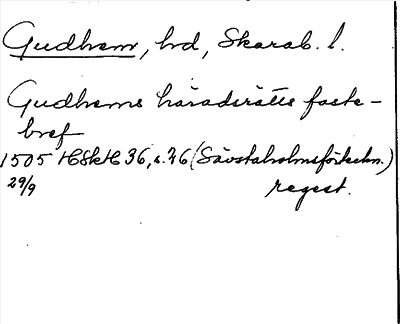 Gudhem, hd, Skarab. l.
Gudhems häradsrätts faste-
bref
1505 HSkH 36, s. 76 (Sävstaholmsförteckn.)
29/9 regest.